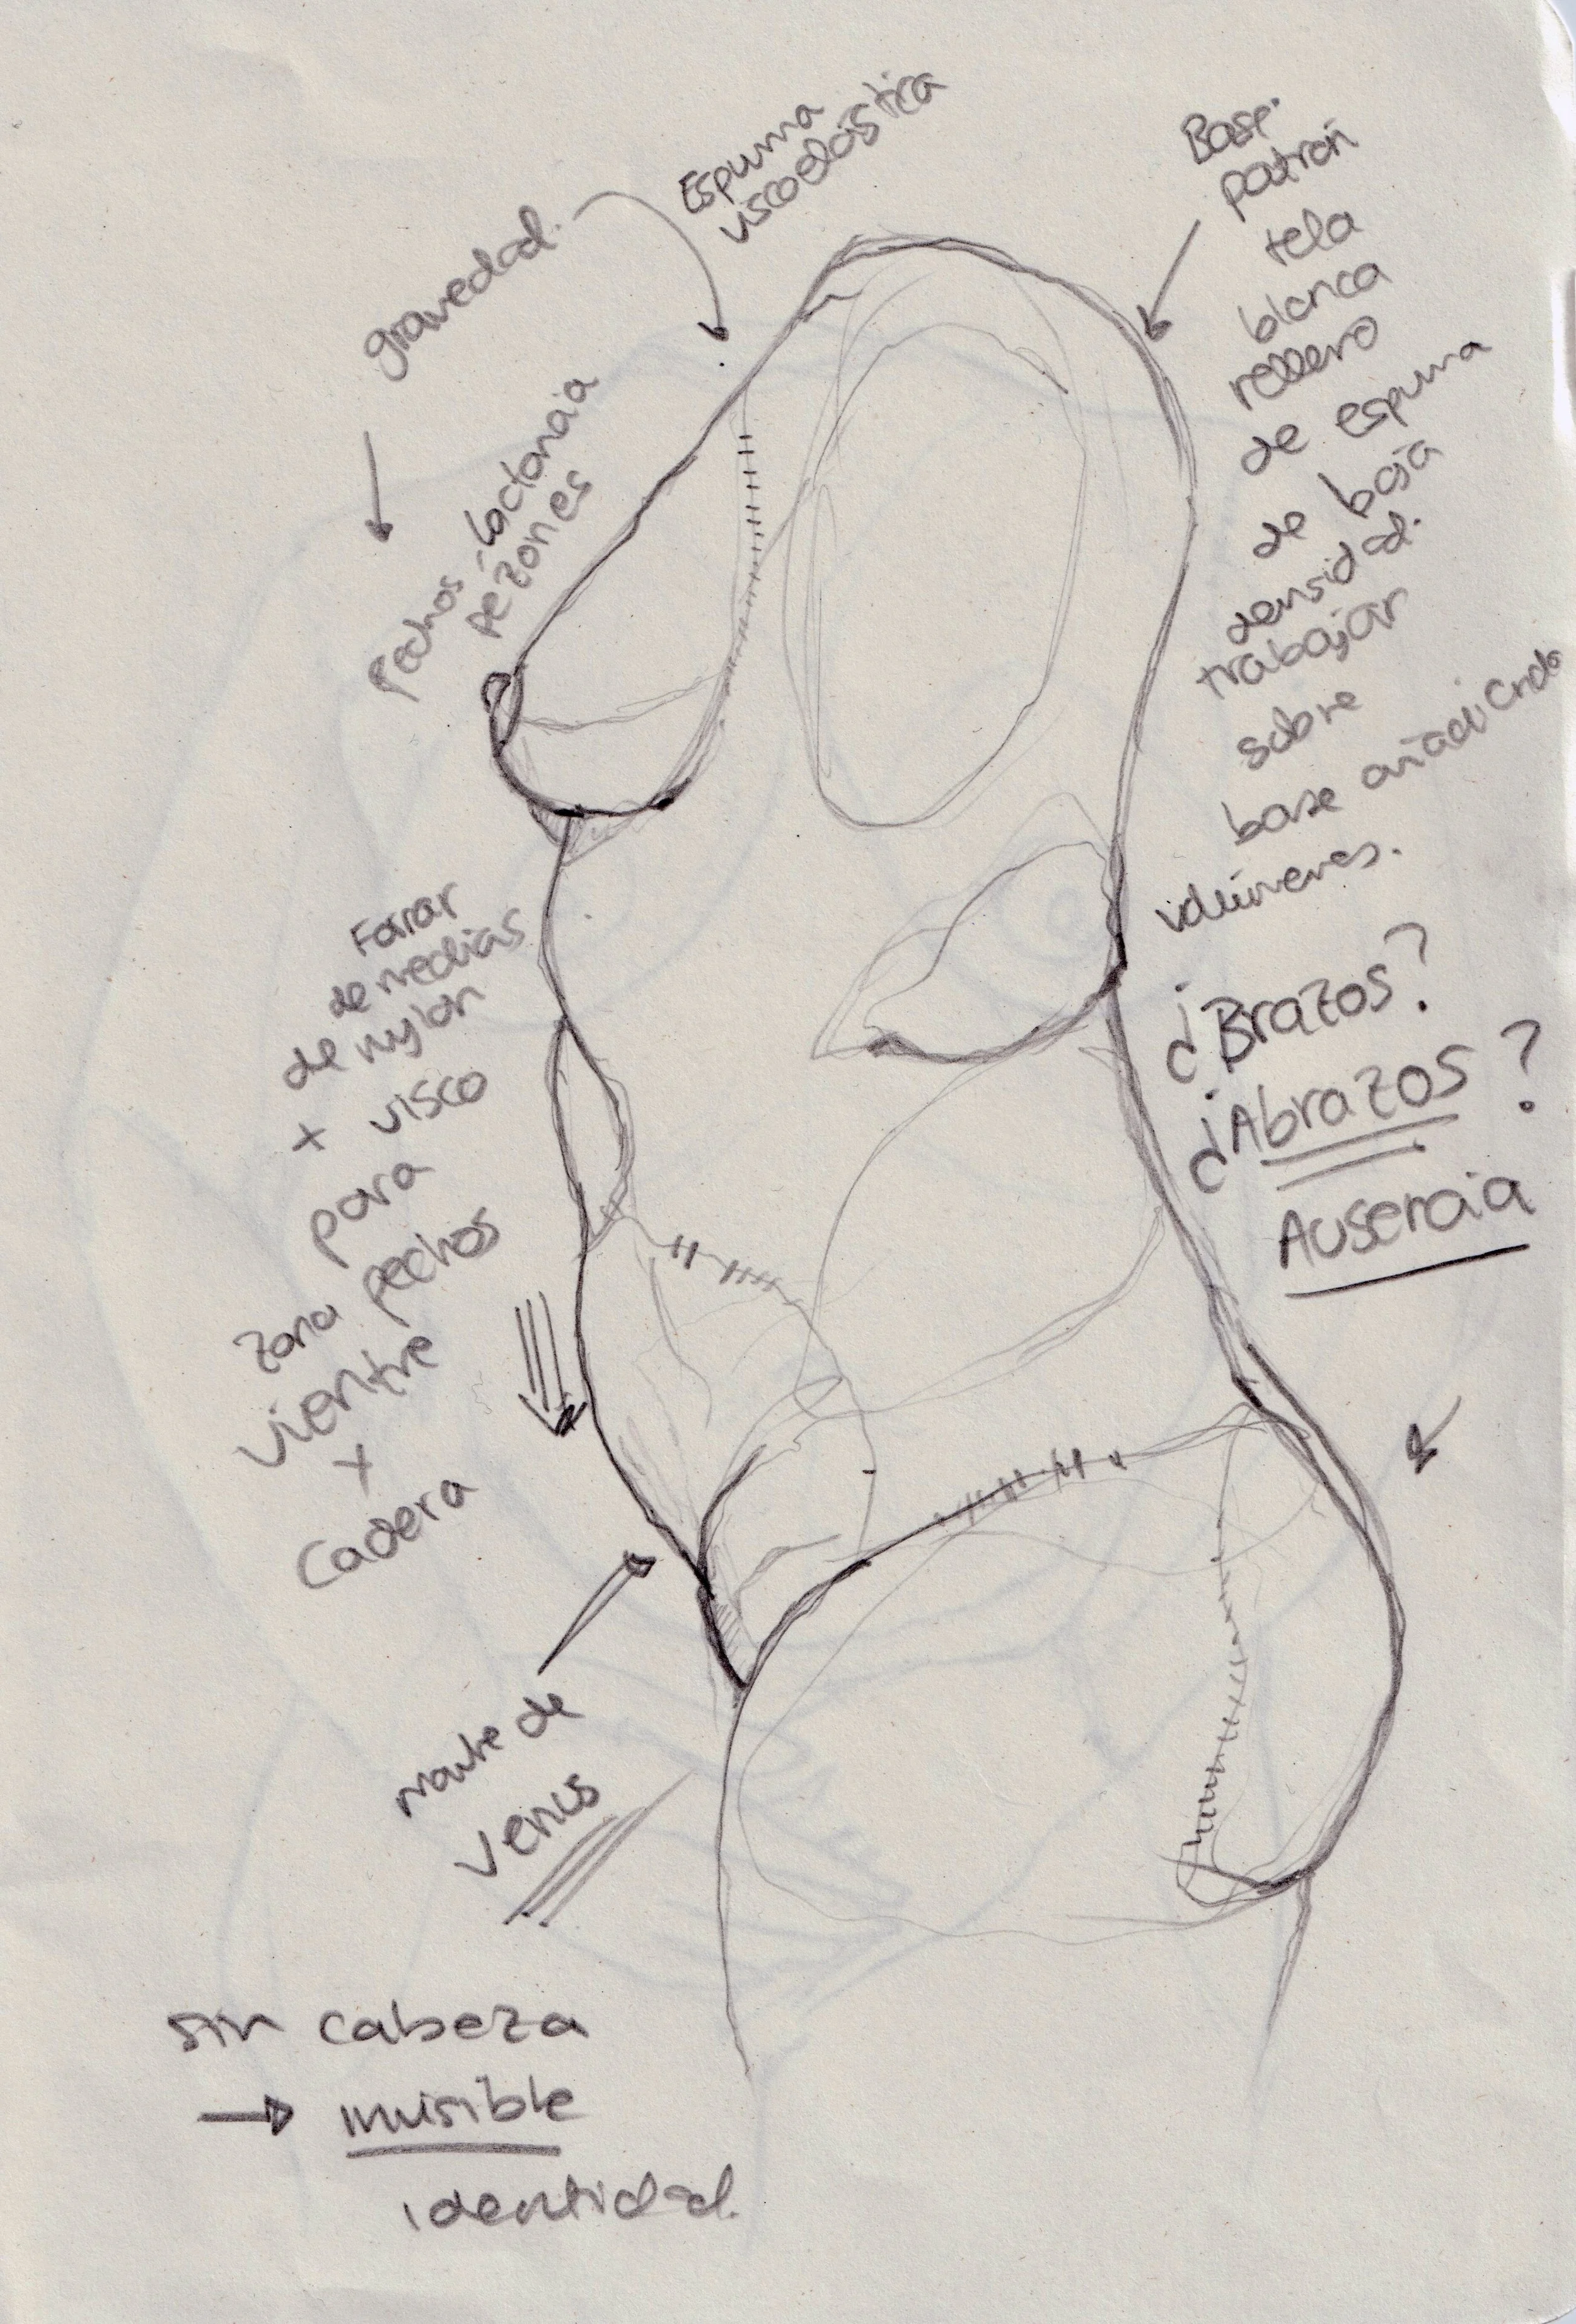 gravedad.
Espuma
viscoelástica
Pechos-lactancia
pezones
Base.
patrón
tela
blanca
relleno
de espuma
de baja
densidad.
trabajar
sobre
base añadiendo
volúmenes.
¿Brazos?
¿Abrazos?
Ausencia
Forrar
de medias
de nylon
+ visco
para
zona pechos
vientre
+
cadera
monte de
Venus
sin cabeza
→ invisible
identidad.